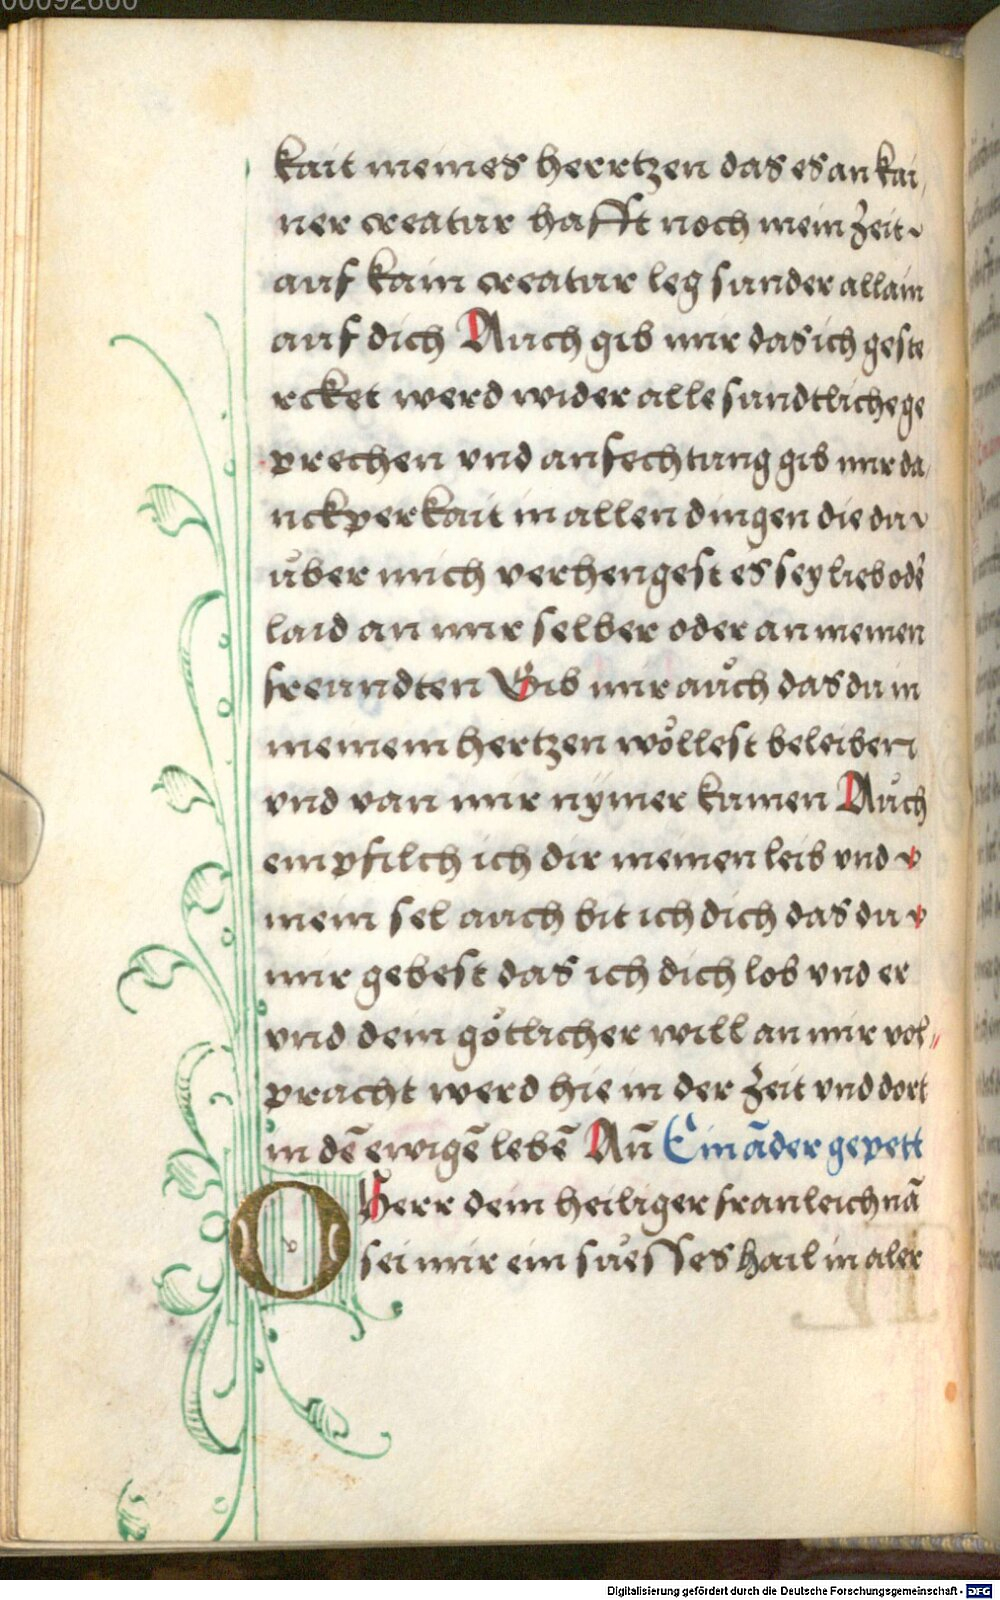 00092800
kait meines herrtzen das es an kai
ner creatur hafft noch mein zeit
auf kain creatur leg sunder allain
auf dich Auch gib mir das ich geste
rcket werd wider alle sundtliche ge
prechen vnd anfechtung gib mir da
nckperkait in allen dingen die du
über mich verhengest es sey lieb oder
laid an mir selber oder an meinen
freundten Gib mir aůch das du in
meinem hertzen wöllest beleiben
vnd van mir nymer kumen Aůch
empfilch ich dir meinen leib vnd
mein sel auch bit ich dich das du
mir gebest das ich dich lob vnd er
vnd dein götlicher will an mir vol„
pracht werd hie in der zeit vnd dort
in dē ewigē lebē Am̄ Ein āder gepett
O Herr dein heiliger franleichnā
sei mir ein süesses hail in aler
Digitalisierung gefördert durch die Deutsche Forschungsgemeinschaft - DFG